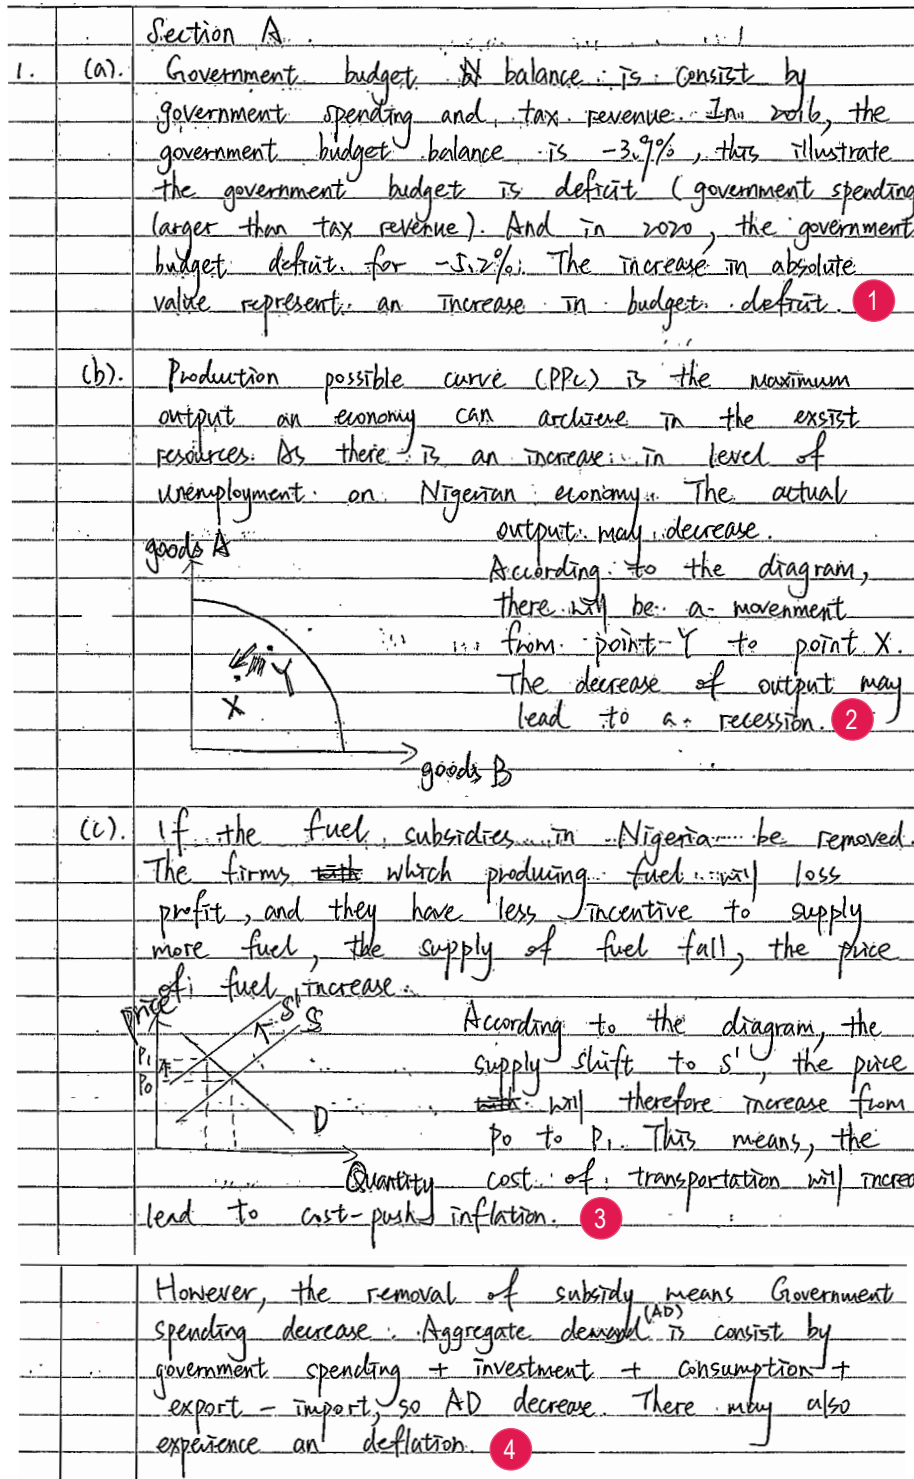 Section A.
1. (a). Government budget balance is consist by
government spending and tax revenue. In 2016, the
government budget balance is -3.9%, this illustrate
the government budget is deficit (government spending
larger than tax revenue). And in 2020, the government
budget deficit for -5.2%. The increase in absolute
value represent an increase in budget deficit. 1
(b). Production possible curve (PPC) is the maximum
output an economy can archieve in the exsist
resources. As there is an increase in level of
unemployment on Nigerian economy. The actual
output may decrease.
goods A
According to the diagram,
there will be a movenment
from point Y to point X.
Y
The decrease of output may
X
lead to a recession. 2
goods B
(c). If the fuel subsidies in Nigeria be removed.
The firms which producing fuel will loss
profit, and they have less incentive to supply
more fuel, the supply of fuel fall, the price
of fuel increase.
Price
S'
S
According to the diagram, the
P1
supply shift to S', the price
P0
will therefore increase from
D
P0 to P1. This means, the
Quantity
cost of transportation will increa
lead to cost-push inflation. 3
However, the removal of subsidy means Government
spending decrease. Aggregate demand (AD) is consist by
government spending + investment + consumption +
export - import, so AD decrease. There may also
experience an deflation. 4